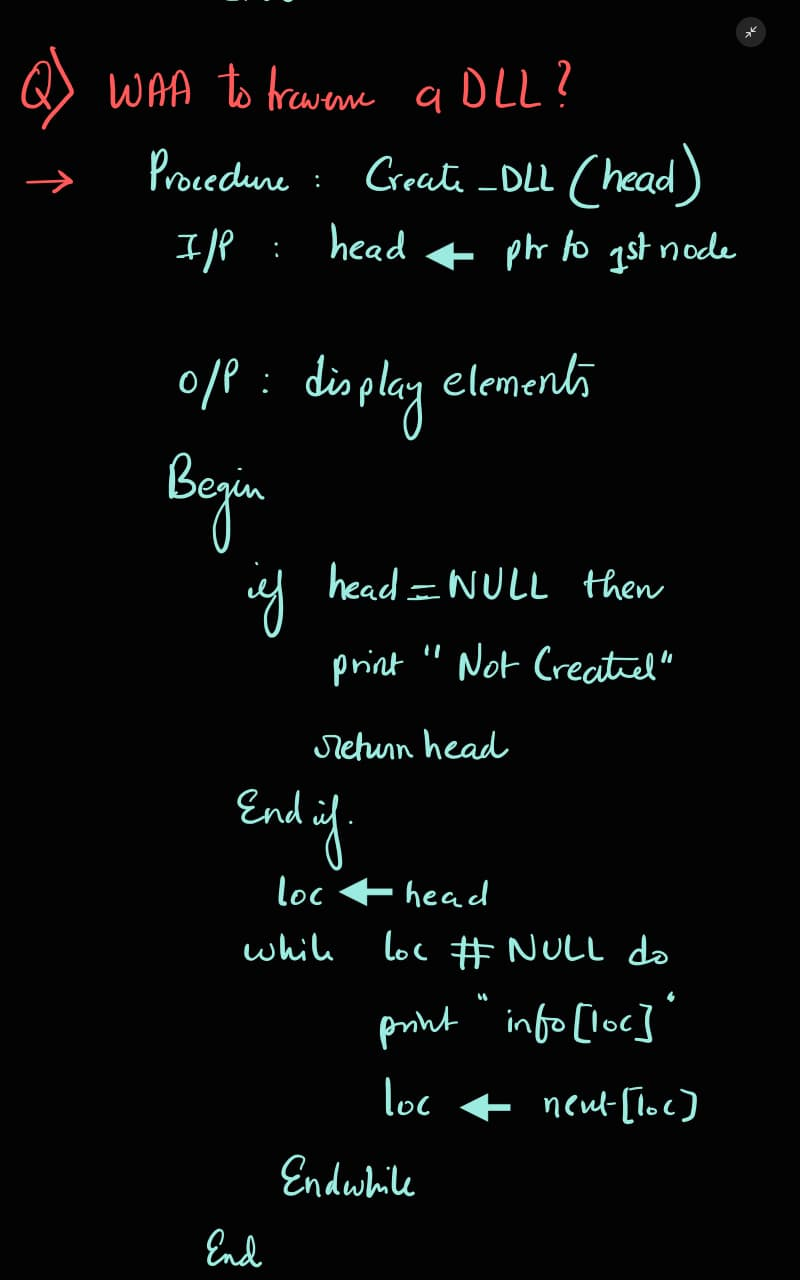 Q) WAA to traverse a DLL?
→ Procedure : Create_DLL (head)
I/P : head ← ptr to 1st node
O/P : display elements
Begin
if head = NULL then
print "Not Created"
return head
End if.
loc ← head
while loc # NULL do
print "info[loc]"
loc ← next[loc]
Endwhile
End